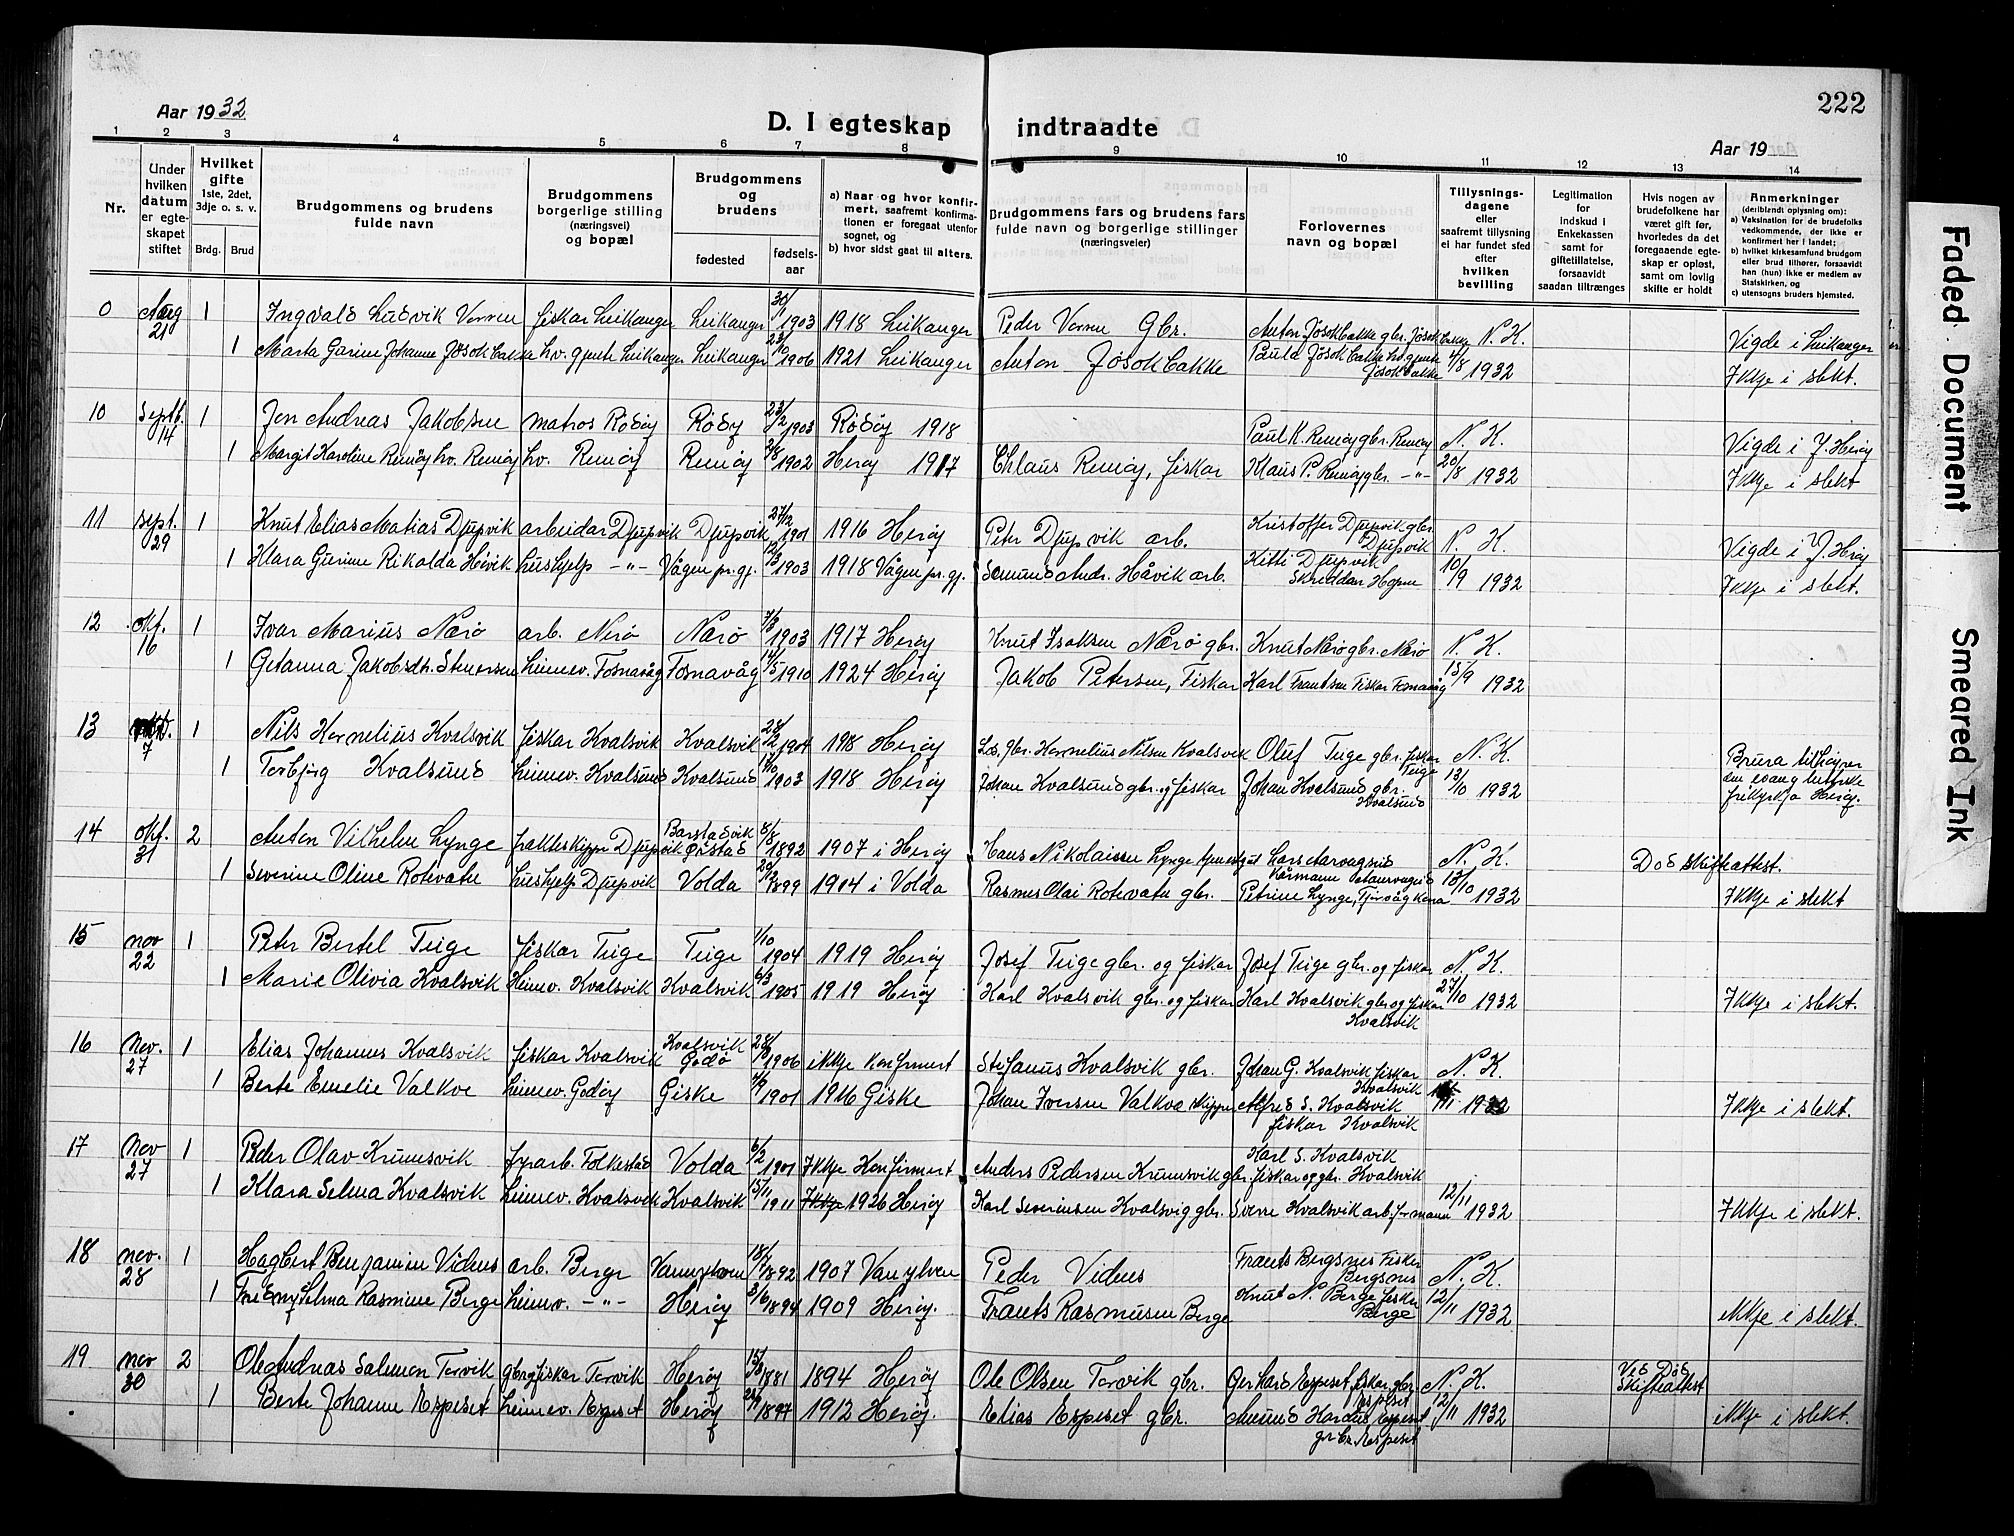 222
Aar 1932
D. I egteskap indtraadte
Aar 19
1 2 3 4 5 6 7 8 9 10 11 12 13 14
Nr.
Under hvilken datum er egteskapet stiftet
Hvilket gifte 1ste, 2det, 3dje o. s. v.
Brdg. Brud
Brudgommens og brudens fulde navn
Brudgommens borgerlige stilling (næringsvei) og bopæl
Brudgommens og brudens
fødested
fødselsaar
a) Naar og hvor konfirmert, saafremt konfirmationen er foregaat utenfor sognet, og
b) hvor sidst gaat til alters.
Brudgommens fars og brudens fars fulde navn og borgerlige stillinger (næringsveier)
Forlovernes navn og bopæl
Tillysningsdagene eller saafremt tillysning ei har fundet sted efter hvilken bevilling
Legitimation for indskud i Enkekassen samt for giftetillatelse, forsaavidt saadan tiltrænges
Hvis nogen av brudefolkene har været gift før, hvorledes da det foregaaende egteskap er opløst, samt om lovlig skifte er holdt
Anmerkninger (deriblandt oplysning om):
a) Vaksination for de brudefolks vedkommende, der ikke er konfirmert her i landet;
b) hvilket kirkesamfund brudgom eller brud tilhører, forsaavidt han (hun) ikke er medlem av Statskirken, og
c) utensogns bruders hjemsted.
0 Aug 21 1 Ingvald Ludvik Vorren fiskar Leikanger Leikanger 30/1 1903 1918 Leikanger Peder Vorren Gbr. Anton Jøsokbakke gbr. Jøsokbakke N. K. Vigde i Leikanger
1 Marta Garine Johanne Jøsokbakke hv. gjente Leikanger Leikanger 1906 1921 Leikanger Anton Jøsokbakke Paula Jøsokbakke hv. gjente Jøsokbakke 4/8 1932 Ikkje i slekt.
10 Septb. 14 1 Jen Andreas Jakobsen matros Rödöy Rödöy 23/2 1903 Rödöy 1918 Paul K. Remøy gbr. Remøy N. K. Vigde i Y. Herøy
1 Margit Karoline Remøy hv. Remøy hv. Remøy Remøy 1902 Herøy 1917 Chlaus Remøy, fiskar Klaus P. Remøy gbr. -"- 20/8 1932 Ikkje i slekt
11 sept. 29 1 Knut Elias Matias Djupvik arbeidar Djupvik Djupvik 27/12 1901 1916 Herøy Peter Djupvik arb. Kristoffer Djupvik gbr. Djupvik N. K. Vigde i Y. Herøy
1 Klara Gurine Rikalda Håvik hushjelp -"- Vågen pr.gj. 1903 1918 Vågen pr.gj. Andr. Håvik arb. Kitti Djupvik 10/9 1932 Ikkje i slekt.
12 okt. 16 1 Ivar Marius Nærø arb. Nerø Nærø 7/3 1903 1917 Herøy Knut Isaksen Nærø gbr. Knut Nærø gbr. Nærø N. K.
1 Getanna Jakobsdtr. heimev. Fosnavåg Fosnavåg 14/5 1910 1924 Herøy Jakob Petersen, Fiskar Karl Frantsen Fiskar Fosnavåg 15/9 1932
13 7 1 Nils Kornelius Kvalsvik fiskar Kvalsvik Kvalsvik 1901 1918 Herøy gbr. Kornelius Nilsen Kvalsvik Oluf Teige gbr. fiskar Teige N. K. Brura tilhøyrer
1 Torbjørg Kvalsund heimev. Kvalsund Kvalsund 1903 1918 Herøy Johan Kvalsund gbr. og fiskar Johan Kvalsund gbr. Kvalsund 13/10 1932 den evang lutherske frikyrkja Herøy.
14 okt. 31 2 Anton Vilhelm Lynge frakteskippr Djupvik Barstadvik Ørstad 8/8 1892 1907 i Herøy Hans Nikolaisen Lynge Lars Aarvagsnes N. K. Död skifteattest.
1 Severine Oline Rotevatn hushjelp Djupvik Volda 1899 1914 i Volda Rasmus Olai Rotevatn gbr. Petrine Lynge, Tjørvåg kona 13/10 1932 Ikkje i slekt
15 nov 22 1 Peter Bertel Teige fiskar Teige Teige 1/10 1904 1919 Herøy Josef Teige gbr. og fiskar Josef Teige gbr. og fiskar N. K.
1 Marie Olivia Kvalsvik Heimev. Kvalsvik Kvalsvik 6/3 1905 1919 Herøy Karl Kvalsvik gbr. og fiskar Karl Kvalsvik gbr og fiskar Kvalsvik 27/10 1932 Ikkje i slekt.
16 Nov. 27 1 Elias Johannes Kvalsvik fiskar Kvalsvik Kvalsvik Godø 1906 ikkje konfirmert Stefanus Kvalsvik gbr. Johan G. Kvalsvik fiskar Kvalsvik N. K.
1 Berte Emelie Valkve heimev. Godøy Giske 1901 1916 Giske Johan Iversen Valkve skippr Alfred S. Kvalsvik fiskar Kvalsvik 1932 Ikkje i slekt.
17 Nov 27 1 Peder Olav Krumsvik fyrarb. Folkestad Volda 6/2 1901 Ikkje Konfirmert Anders Pedersen Krumsvik gbr. Karl S. Kvalsvik fiskar og gbr. Kvalsvik
1 Klara Selma Kvalsvik heimev. Kvalsvik Kvalsvik 15/11 1911 Ikkje 1926 Herøy Karl Severinsen Kvalsvig gbr. Sverre Kvalsvik arb. formann 12/11 1932 Ikkje i slekt.
18 nov. 28 1 Hagbert Benjamin Vidnes arb. Berge Vannylven 18/7 1892 1907 Vanylven Peder Vidnes Frants Bergsnes Fisker Bergsnes N. K.
1 Selma Rasmine Berge heimev. -"- Herøy 1894 1909 Herøy. Frants Rasmussen Berge Knut N. Berge fisker Berge 12/11 1932 ikkje i slekt.
19 nov 30 2 Ole Andreas Salomon Torvik gbr og fiskar Torvik Herøy 1881 1894 Herøy Ole Olsen Torvik gbr. Gerhard Espeset fiskar gbr. Espeset N. K. Ved Död Skifteattest
1 Berte Johanne Espeset heimev. Espeset Herøy 1897 1912 Herøy. Elias Espeset gbr. Espeset grbr. Espeset 12/11 1932 ikkje i slekt.
Faded Document
Smeared Ink